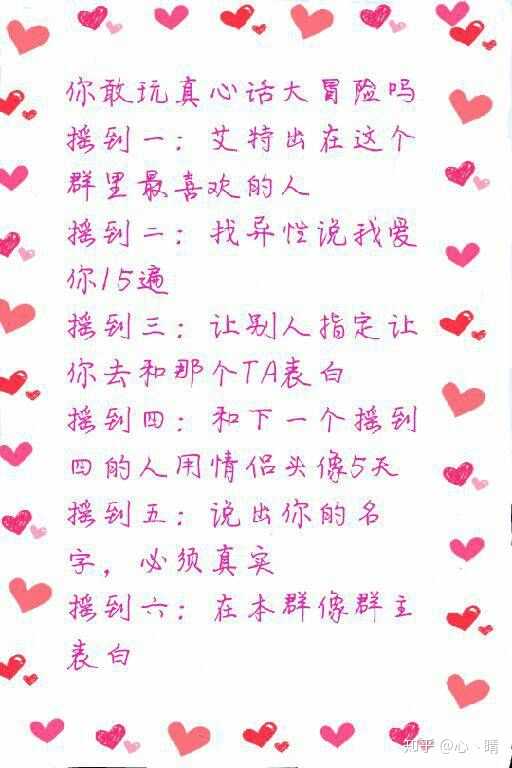 你敢玩真心话大冒险吗
摇到一：艾特出在这个
群里最喜欢的人
摇到二：找异性说我爱
你15遍
摇到三：让别人指定让
你去和那个TA表白
摇到四：和下一个摇到
四的人用情侣头像5天
摇到五：说出你的名
字，必须真实
摇到六：在本群像群主
表白
知乎 @心、晴